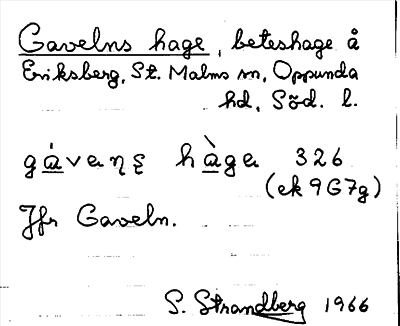 Gavelns hage, beteshage å
Eriksberg, St. Malms sn, Oppunda
hd, Söd. l.
gá̱vaηs hà̱ga 326
(ek 9G7g)
Jfr Gaveln.
S. Strandberg 1966